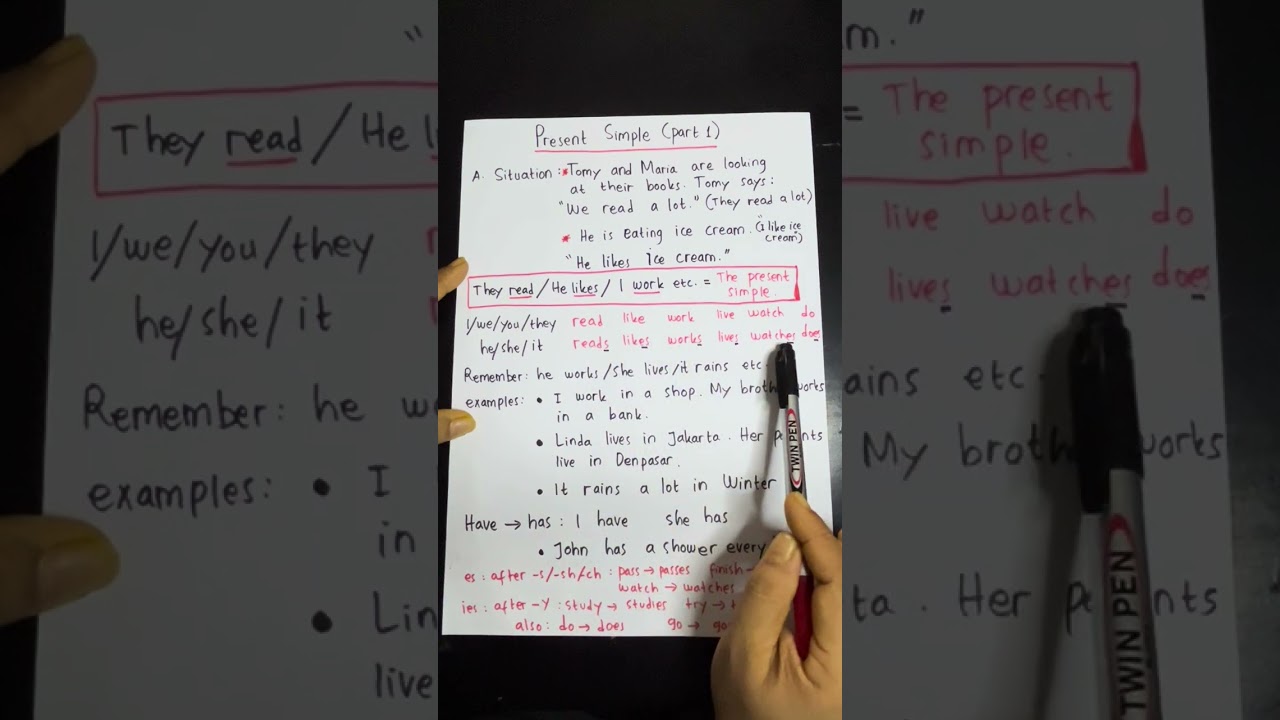 Present Simple (part 1)
A. Situation : * Tomy and Maria are looking
at their books. Tomy says:
"We read a lot." (They read a lot)
* He is Eating ice cream. ("I like ice
cream")
"He likes ice cream."
They read / He likes / I work etc. = The present
simple.
I/we/you/they read like work live watch do
he/she/it reads likes works lives watches does
Remember: he works/she lives/it rains etc.
examples: • I work in a shop. My broth works
in a bank.
• Linda lives in Jakarta. Her parents
live in Denpasar.
• It rains a lot in Winter
Have → has : I have she has
• John has a shower every
es : after -s/-sh/ch : pass → passes finish
watch → watches
ies : after -y : study → studies try →
also : do → does go →
TWIN PEN